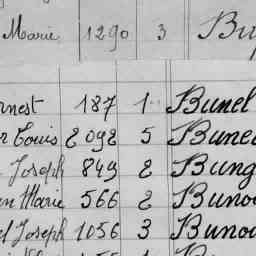 Marie 1290 3 Bu
rnest 187 1 Bunel
r Louis 2092 5 Bunel
Joseph 849 2 Bung
n Marie 566 2 Buno
el Joseph 1056 3 Buno